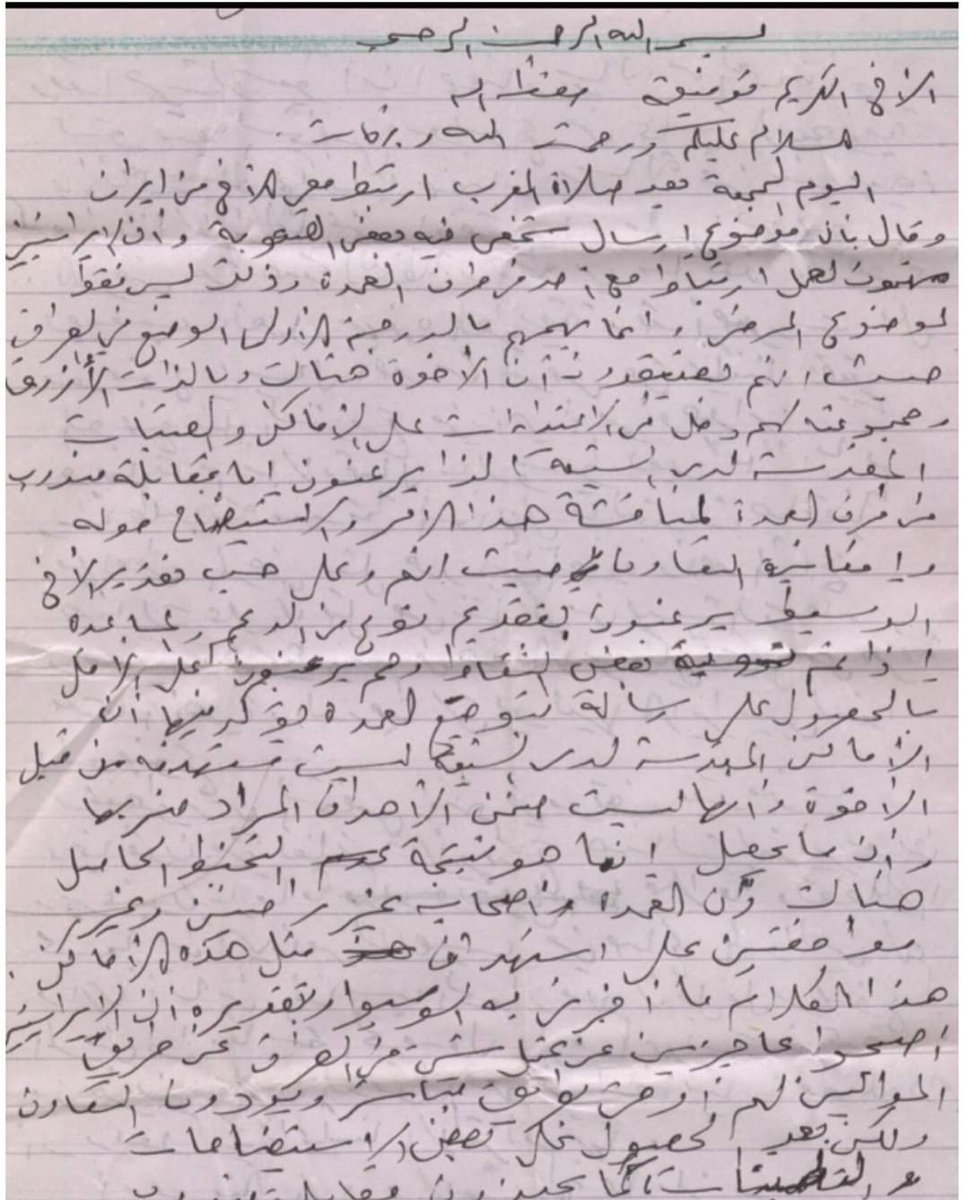 بسم الله الرحمن الرحيم
الأخ الكريم توفيق حفظه الله
السلام عليكم ورحمت الله وبركات
اليوم الجمعة بعد صلاة المغرب ارتبط معي الأخ من ايران
وقال بأن موضوع ارسال شخص فيه بعض الصعوبة وأن الايرانيين
مهتمون لعمل ارتباط مع أحد من طرف العمدة وذلك ليس فقط
لموضوع المرض وانما يهمهم بالدرجة الأولى الوضع في العراق
حيث انهم يعتقدون أن الأخوة هناك وبالذات الأزرق
ومجموعته لهم دخل في الاعتداءات على الأماكن والعتبات
المقدسة لدى الشيعة لذا يرغبون اما بمقابلة مندوب
من طرف العمدة لمناقشة هذا الأمر والاستيضاح حوله
وإمكانية التعاون حيث انهم وعلى حسب تقدير الأخ
الوسيط يرغبون بتقديم نوع من الدعم والمساعدة
إذا تم تسوية بعض النقاط وهم يرغبون على الأقل
بالحصول على رسالة بتوقيع العمدة يؤكد فيها أن
الأماكن المقدسة لدى الشيعة ليست مستهدفة من قبل
الأخوة وأنها ليست ضمن الأهداف المراد ضربها
وأن ما يحصل انما هو نتيجة التخبط الحاصل
هناك وأن العمدة وأصحابه غير راضين وغير
موافقين على استهداف مثل هذه الأماكن.
هذا الكلام ما أفرز به الوسيط وبتقديره أن الايرانيين
أصبحوا عاجزين عن عمل شيء في العراق عن طريق
الموالين لهم أو حتى بطريق مباشر ويودون التعاون
ولكن بعد الحصول على بعض الاستيضاحات